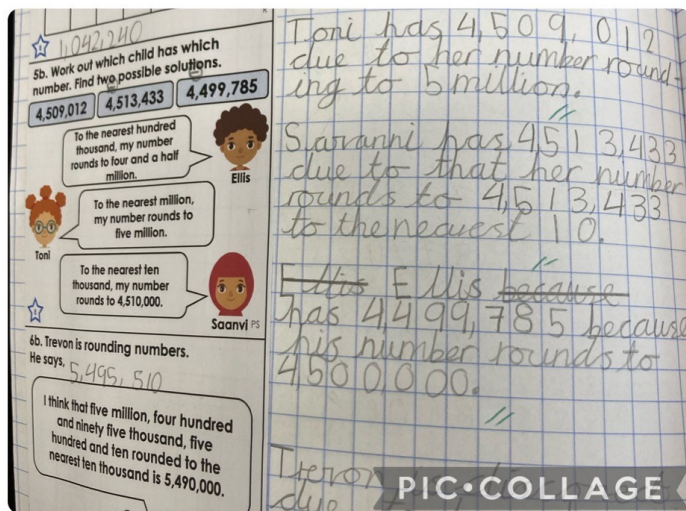 R
1,042,240
5b. Work out which child has which
number. Find two possible solutions.
4,509,012 4,513,433 4,499,785
To the nearest hundred
thousand, my number
rounds to four and a half
million.
Ellis
To the nearest million,
my number rounds to
five million.
Toni
To the nearest ten
thousand, my number
rounds to 4,510,000.
Saanvi PS
6b. Trevon is rounding numbers.
He says,
5,495,510
I think that five million, four hundred
and ninety five thousand, five
hundred and ten rounded to the
nearest ten thousand is 5,490,000.
Toni has 4,509,012
due to her number round-
ing to 5 million.
Saranni has 4,513,433
due to that her number
rounds to 4,513,433
to the nearest 10.
Ellis Ellis because
has 4,499,785 because
his number rounds to
4500000.
Trevon
due
PIC•COLLAGE